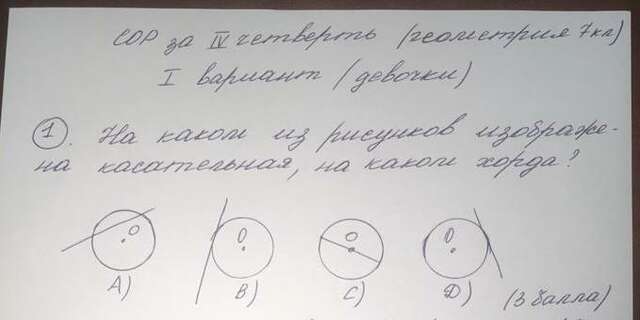 СОР за IV четверть (геометрия 7кл)
I вариант (девочки)
1. На каком из рисунков изображе-
на касательная, на каком хорда?
O O O O
A) B) C) D)
(3 балла)